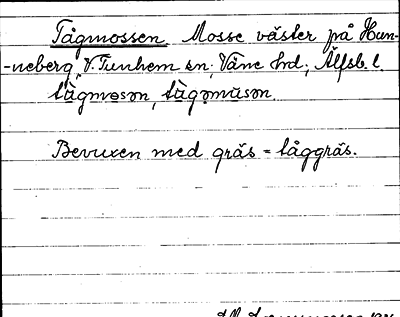 Tågmossen Mosse väster på Hun-
-neberg, V. Tunhem sn. Väne hd; Älfsb. l.
tågmosən, tågomåsən.
Bevuxen med gräs = tåggräs.